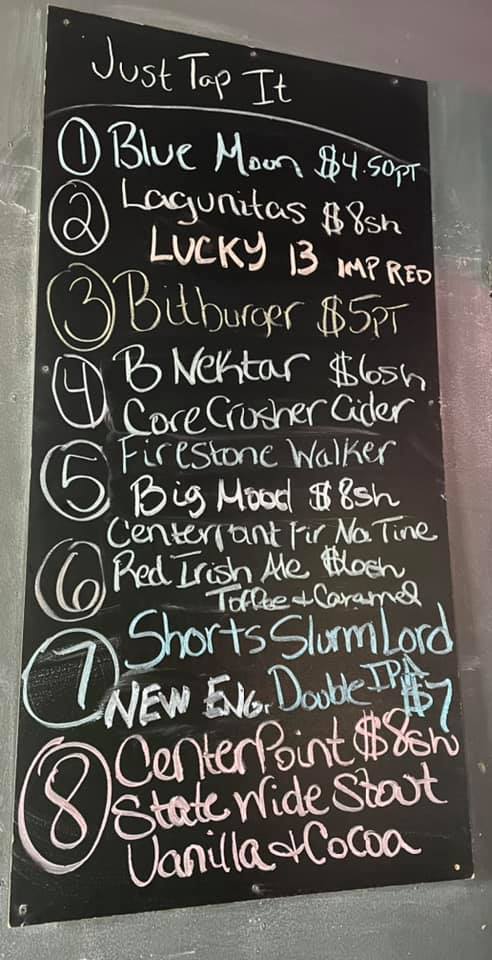 Just Tap It
① Blue Moon $4.50PT
② Lagunitas $8sh
LUCKY 13 IMP RED
③ Bitburger $5PT
④ B Nektar $6sh
Core Crusher Cider
⑤ Firestone Walker
Big Mood $8sh
Centerpant Fir Na Tine
⑥ Red Irish Ale $6sh
Toffee + Caramel
⑦ Shorts Slurm Lord
NEW ENG. Double IPA $7
⑧ CenterPoint $8sh
State Wide Stout
Vanilla + Cocoa